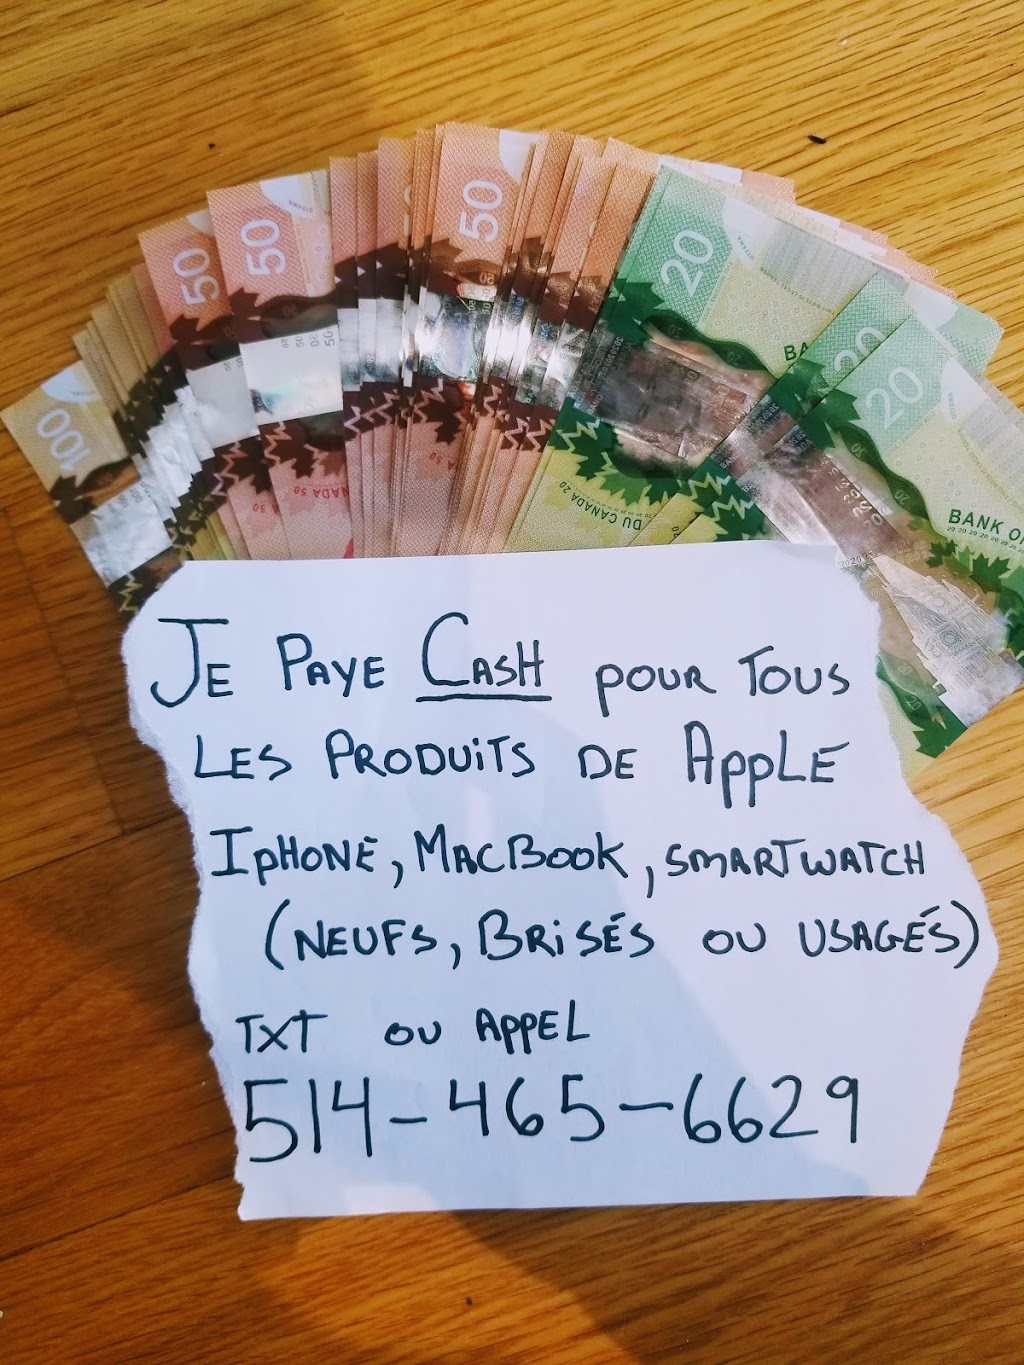 100
50
50
50
20
20
20
BANK O
DU CANADA 20
CANADA 50
JE PAYE CASH POUR TOUS
LES PRODUITS DE APPLE
IPHONE, MACBOOK, SMARTWATCH
(NEUFS, BRISÉS OU USAGÉS)
TXT OU APPEL
514-465-6629